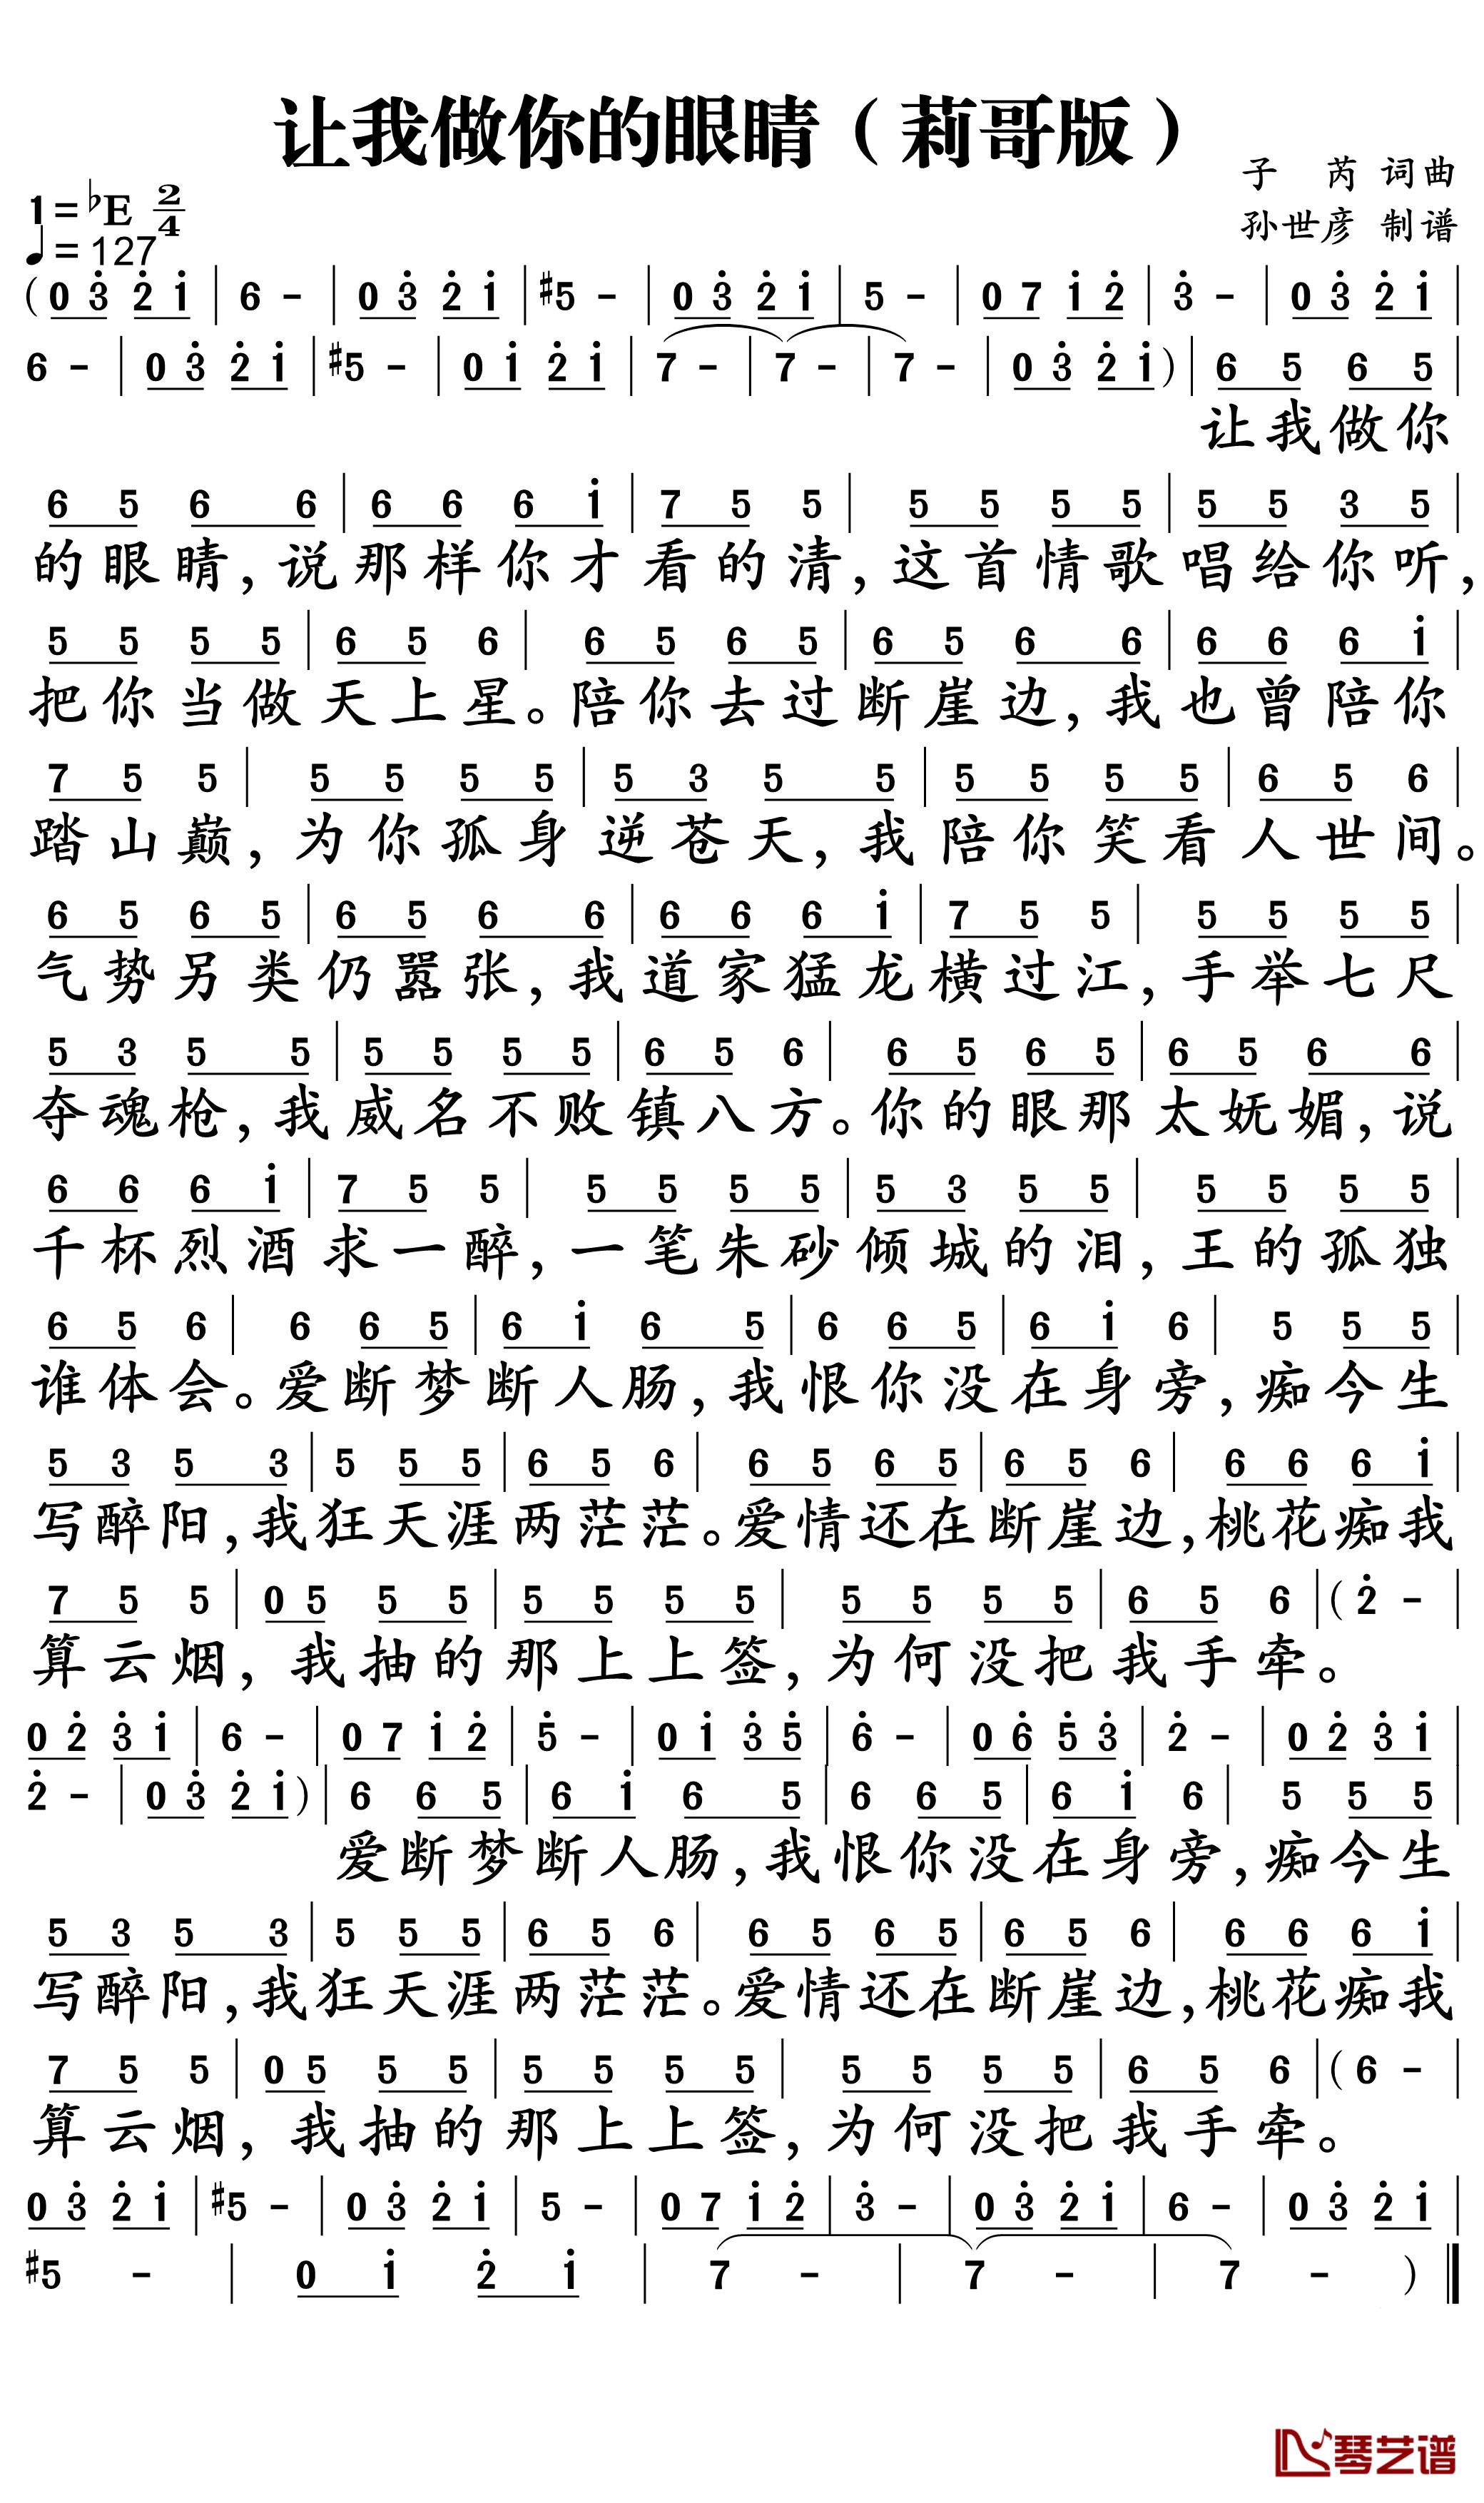 让我做你的眼睛（莉哥版）
子 芮 词曲
1=♭E 2/4
孙世彦 制谱
♩=127
(0 3̇ 2̇ 1̇ | 6 - | 0 3̇ 2̇ 1̇ | #5 - | 0 3̇ 2̇ 1̇ | 5 - | 0 7 1̇ 2̇ | 3̇ - | 0 3̇ 2̇ 1̇ |
6 - | 0 3̇ 2̇ 1̇ | #5 - | 0 1̇ 2̇ 1̇ | 7 - | 7 - | 7 - | 0 3̇ 2̇ 1̇) | 6 5 6 5 |
让我做你
6 5 6 6 | 6 6 6 1̇ | 7 5 5 | 5 5 5 5 | 5 5 3 5 |
的眼睛,说那样你才看的清,这首情歌唱给你听,
5 5 5 5 | 6 5 6 | 6 5 6 5 | 6 5 6 6 | 6 6 6 1̇ |
把你当做天上星。陪你去过断崖边,我也曾陪你
7 5 5 | 5 5 5 5 | 5 3 5 5 | 5 5 5 5 | 6 5 6 |
踏山巅,为你孤身逆苍天,我陪你笑看人世间。
6 5 6 5 | 6 5 6 6 | 6 6 6 1̇ | 7 5 5 | 5 5 5 5 |
气势另类仍嚣张,我道家猛龙横过江,手举七尺
5 3 5 5 | 5 5 5 5 | 6 5 6 | 6 5 6 5 | 6 5 6 6 |
夺魂枪,我威名不败镇八方。你的眼那太妩媚,说
6 6 6 1̇ | 7 5 5 | 5 5 5 5 | 5 3 5 5 | 5 5 5 5 |
千杯烈酒求一醉,一笔朱砂倾城的泪,王的孤独
6 5 6 | 6 6 5 | 6 1̇ 6 5 | 6 6 5 | 6 1̇ 6 | 5 5 5 |
谁体会。爱断梦断人肠,我恨你没在身旁,痴今生
5 3 5 3 | 5 5 5 | 6 5 6 | 6 5 6 5 | 6 5 6 | 6 6 6 1̇ |
写醉阳,我狂天涯两茫茫。爱情还在断崖边,桃花痴我
7 5 5 | 0 5 5 5 | 5 5 5 5 | 5 5 5 5 | 6 5 6 | (2̇ - |
算云烟,我抽的那上上签,为何没把我手牵。
0 2̇ 3̇ 1̇ | 6 - | 0 7 1̇ 2̇ | 5̇ - | 0 1̇ 3̇ 5̇ | 6̇ - | 0 6̇ 5̇ 3̇ | 2̇ - | 0 2̇ 3̇ 1̇ |
2̇ - | 0 3̇ 2̇ 1̇) | 6 6 5 | 6 1̇ 6 5 | 6 6 5 | 6 1̇ 6 | 5 5 5 |
爱断梦断人肠,我恨你没在身旁,痴今生
5 3 5 3 | 5 5 5 | 6 5 6 | 6 5 6 5 | 6 5 6 | 6 6 6 1̇ |
写醉阳,我狂天涯两茫茫。爱情还在断崖边,桃花痴我
7 5 5 | 0 5 5 5 | 5 5 5 5 | 5 5 5 5 | 6 5 6 | (6 - |
算云烟,我抽的那上上签,为何没把我手牵。
0 3̇ 2̇ 1̇ | #5 - | 0 3̇ 2̇ 1̇ | 5 - | 0 7 1̇ 2̇ | 3̇ - | 0 3̇ 2̇ 1̇ | 6 - | 0 3̇ 2̇ 1̇ |
#5 - | 0 1̇ 2̇ 1̇ | 7 - | 7 - | 7 - )‖
琴艺谱